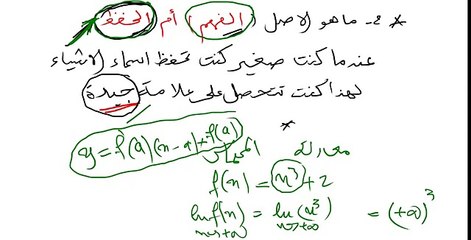 * 2- ماهو الاصل الفهم أم الحفظ
عندما كنت صغير كنت تحفظ اسماء الاشياء
لهذا كنت تتحصل على علامة جيدة
*
y = f'(a)(x-a)+f(a) معادلة المماس
f(x) = x³+2
lim f(x) = lim (x³) = (+∞)³
x→+∞ x→+∞